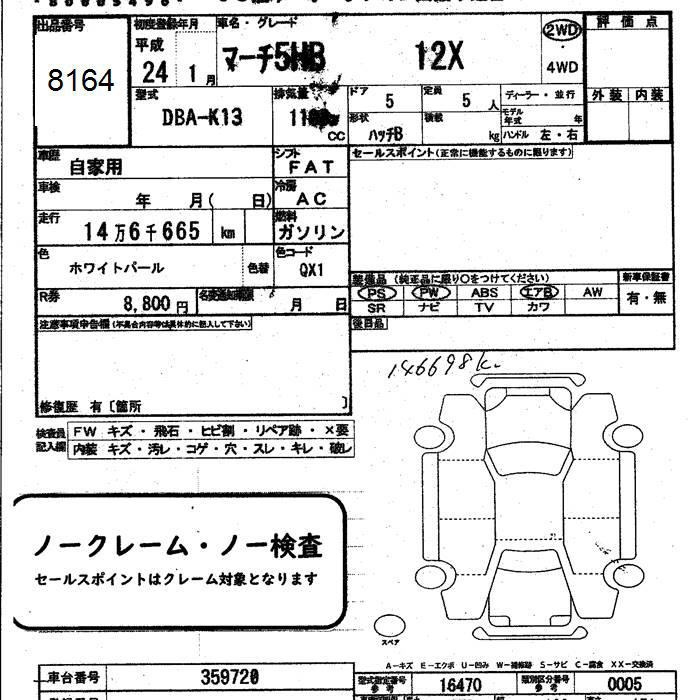 出品番号
8164
初度登録年月
平成
24 1月
車名・グレード
マーチ5HB 12X
2WD
4WD
評価点
外装 内装
型式
DBA-K13
排気量
CC
ドア
5
定員
5人
ディーラー・並行
モデル年式 年
形状
ハッチB
積載
kg
ハンドル 左・右
車歴
自家用
シフト
FAT
セールスポイント(正常に機能するものに限ります)
車検
年 月( 日)
冷房
AC
走行
14万6千665 km
燃料
ガソリン
色
ホワイトパール
色替
色コード
QX1
装備品 (純正品に限り○をつけてください)
新車保証書
PS PW ABS エアB AW
有・無
SR ナビ TV カワ
R券
8,800円
名変通知期限
月 日
後日品
注意事項申告欄(不具合内容等は具体的に記入して下さい)
修復歴 有〔箇所 〕
146698k.
検査員記入欄
FW キズ・飛石・ヒビ割・リペア跡・×要
内装 キズ・汚レ・コゲ・穴・スレ・キレ・破レ
ノークレーム・ノー検査
セールスポイントはクレーム対象となります
スペア
A-キズ E-エクボ U-凹み W-補修跡 S-サビ C-腐食 XX-交換済
車台番号
359720
型式指定番号
参考
16470
類別区分番号
参考
0005